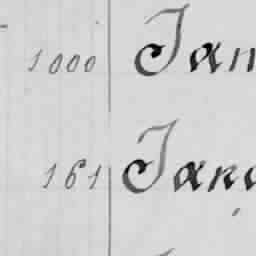 1000 Jan
161 Jano